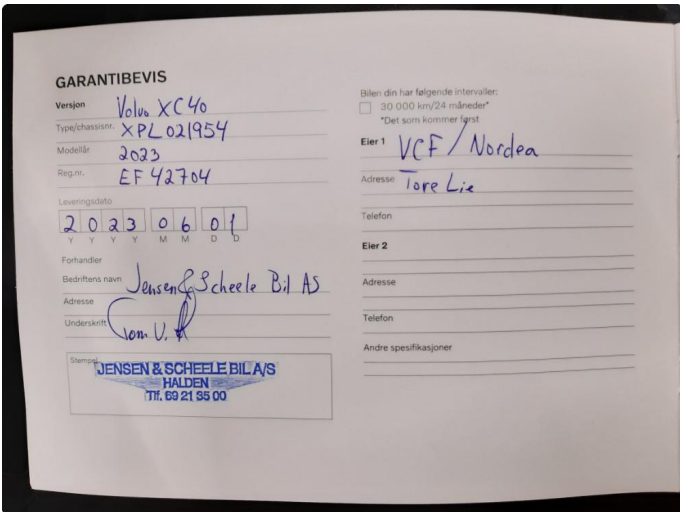 GARANTIBEVIS
Versjon Volvo XC40
Type/chassisnr. XPL021954
Modellår 2023
Reg.nr. EF 42704
Leveringsdato
2 0 2 3 0 6 0 1
Y Y Y Y M M D D
Forhandler
Bedriftens navn Jensen & Scheele Bil AS
Adresse
Underskrift Tom V.
Stempel
JENSEN & SCHEELE BIL A/S
HALDEN
Tlf. 69 21 35 00
Bilen din har følgende intervaller:
30 000 km/24 måneder*
*Det som kommer først
Eier 1 VCF / Nordea
Adresse Tore Lie
Telefon
Eier 2
Adresse
Telefon
Andre spesifikasjoner